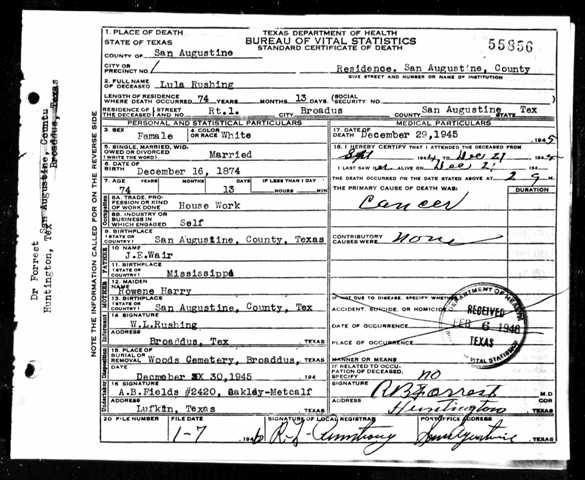 1. PLACE OF DEATH
STATE OF TEXAS
TEXAS DEPARTMENT OF HEALTH
BUREAU OF VITAL STATISTICS
STANDARD CERTIFICATE OF DEATH
55856
COUNTY OF San Augustine
CITY OR PRECINCT NO. 1
Residence, San August'ne, County
GIVE STREET AND NUMBER OR NAME OF INSTITUTION
2. FULL NAME OF DECEASED Lula Rushing
LENGTH OF RESIDENCE WHERE DEATH OCCURRED 74 YEARS MONTHS 13 DAYS (SOCIAL SECURITY NO.
RESIDENCE OF THE DECEASED STREET AND NO. Rt.1. CITY Broadus COUNTY San Augustine STATE Tex
PERSONAL AND STATISTICAL PARTICULARS
3. SEX Famale
4. COLOR OR RACE White
5. SINGLE, MARRIED, WIDOWED OR DIVORCED (WRITE THE WORD) Married
6. DATE OF BIRTH December 16, 1874
7. AGE YEARS MONTHS DAYS IF LESS THAN 1 DAY
74 13 HOURS MIN
8A. TRADE, PROFESSION OR KIND OF WORK DONE House Work
8B. INDUSTRY OR BUSINESS IN WHICH ENGAGED Self
9. BIRTHPLACE (STATE OR COUNTRY) San Augustine, County, Texas
10. NAME J.E.Wair
11. BIRTHPLACE (STATE OR COUNTRY) Mississippi
12. MAIDEN NAME Rowene Harry
13. BIRTHPLACE (STATE OR COUNTRY) San Augustine, County, Tex
14. SIGNATURE W.L.Rushing
ADDRESS Broaddus, Tex TEXAS
15. PLACE OF BURIAL OR REMOVAL Woods Cemetery, Broaddus, TEXAS
DATE 30,1945 194
16. SIGNATURE A.B.Fields #2420, Oakley-Metcalf
ADDRESS Lufkin, Texas TEXAS
MEDICAL PARTICULARS
17. DATE OF DEATH December 29,1945 1945
18. I HEREBY CERTIFY THAT I ATTENDED THE DECEASED FROM
Sept 194 TO Dec 21 194
I LAST SAW ALIVE ON Dec 2
THE DEATH OCCURRED ON THE DATE STATED ABOVE AT
THE PRIMARY CAUSE OF DEATH WAS: DURATION
Cancer
CONTRIBUTORY CAUSES WERE: None
IF NOT DUE TO DISEASE, SPECIFY WHETHER
ACCIDENT, SUICIDE, OR HOMICIDE
DATE OF OCCURRENCE
PLACE OF OCCURRENCE
MANNER OR MEANS
DEPARTMENT OF HEALTH
RECEIVED
FEB 6 1946
TEXAS
VITAL STATISTICS
IF RELATED TO OCCUPATION OF DECEASED, SPECIFY no
SIGNATURE R B Forrest M.D COR
ADDRESS Huntington TEXAS
20 FILE NUMBER
FILE DATE 1-7 1946
SIGNATURE OF LOCAL REGISTRAR R. J. Armstrong
POSTOFFICE ADDRESS San Augustine TEXAS
NOTE THE INFORMATION CALLED FOR ON THE REVERSE SIDE
Occupation
FATHER
MOTHER
Informant
Disposition
Undertaker
Dr Forrest
Huntington, Tex
San Augustine Countu
Broaddus, Texas